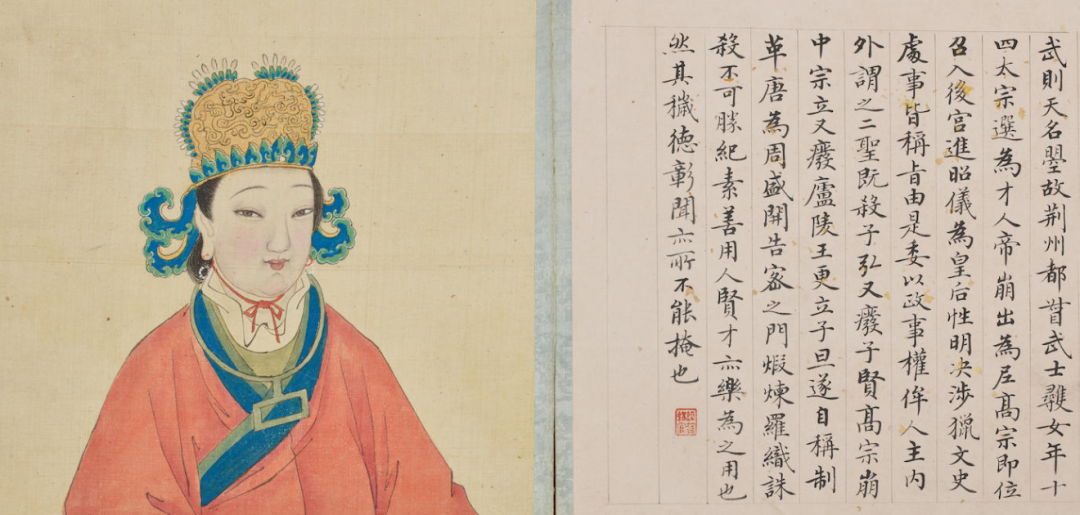 武則天名曌故荆州都督武士彠女年十
四太宗選為才人帝崩出為尼髙宗即位
召入後宫進昭儀為皇后性明决涉獵文史
處事皆稱旨由是委以政事權侔人主内
外謂之二聖既殺子弘又廢子賢髙宗崩
中宗立又廢廬陵王更立子旦遂自稱制
革唐為周盛開告密之門煅煉羅織誅
殺不可勝紀素善用人賢才亦樂為之用也
然其穢德彰聞亦所不能掩也